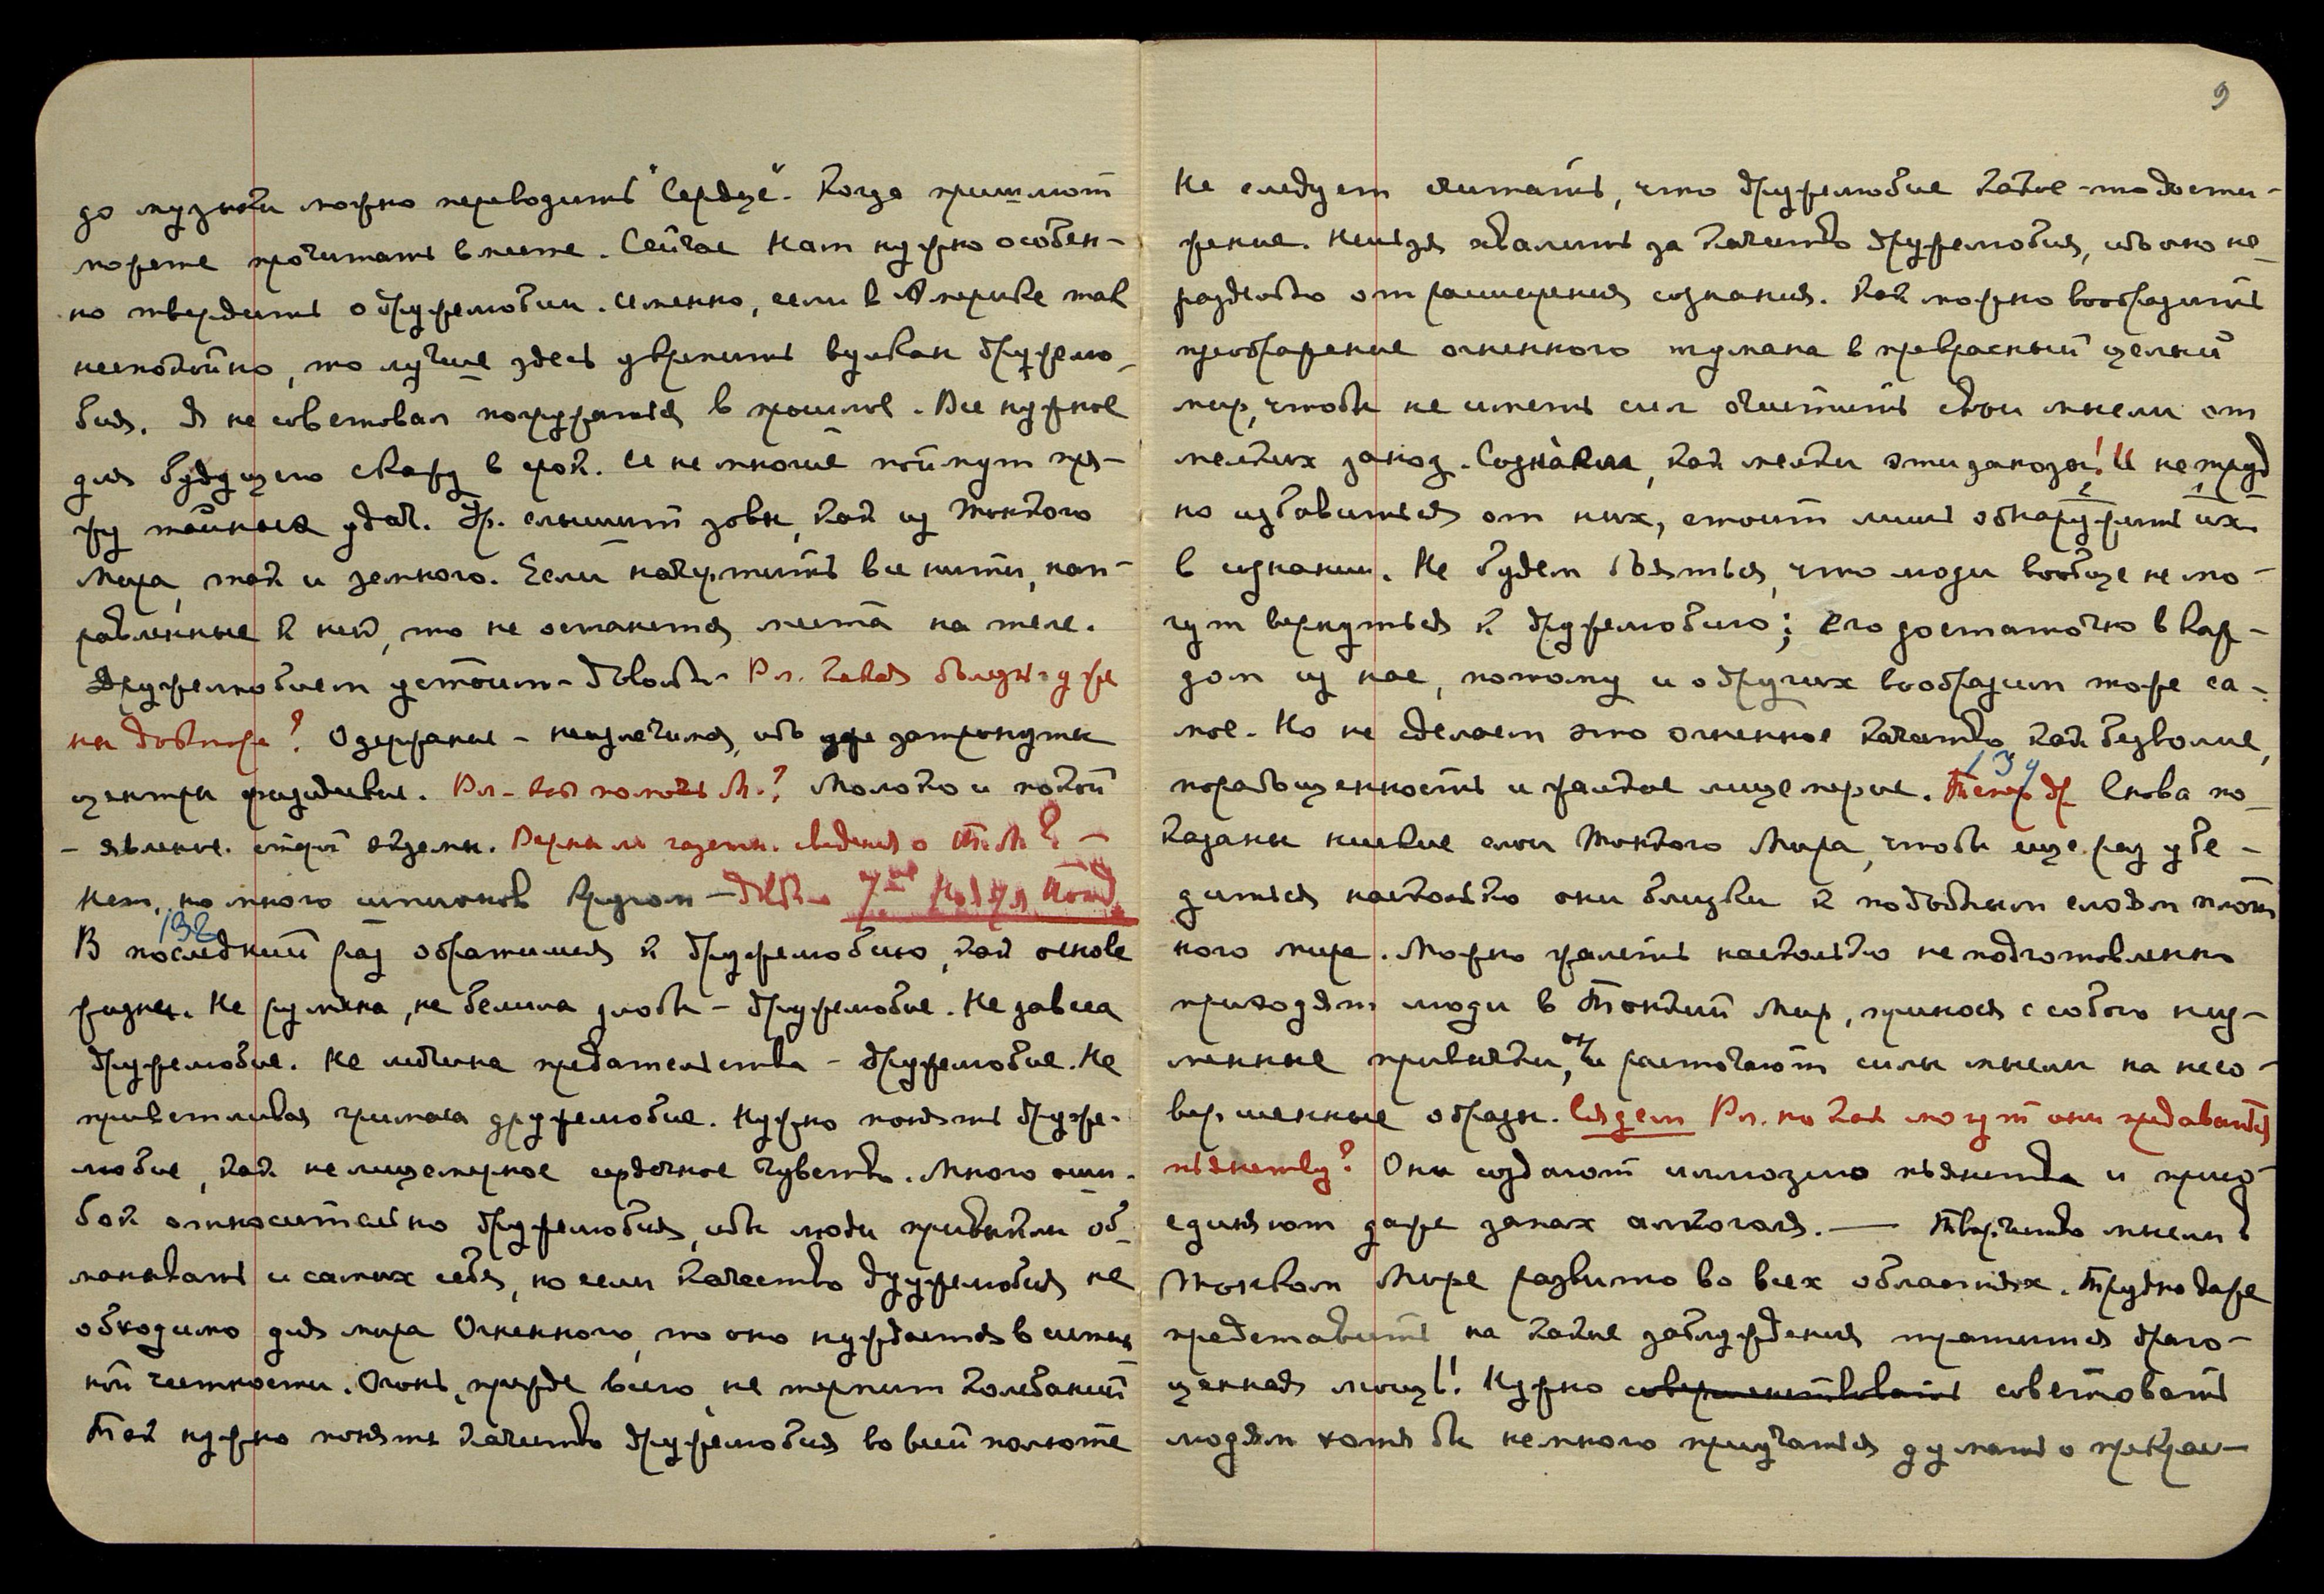 до музыки можно переводить "Сердце". Когда пришлют
можете прочитать вместе. Сейчас нам нужно особен-
но твердить о дружелюбии. Именно, если в Америке так
неспокойно, то лучше здесь укрепить вулкан дружелю-
бия. Я не советовал погружаться в прошлое. Все нужное
для будущего скажу в срок. И не многие поймут пря-
жу тайных удач. Др. слышит зовы, как из Тонкого
Мира, так и земного. Если начертить все нити, нап-
равленные к ней, то не останется места на теле.
Дружелюбием устоим – Довольно. Рл. Какая болезнь у же
ны доктора? Одержание – неизлечима, ибо уже затронуты
центры физические. Рл – как помочь М.? Молоко и покой
– явление. стары экземы. Верны ли газетн. сведения о Т. М? –
Нет, но много шпионов кругом – Довольно 7
132
В последний раз обратимся к дружелюбию, как основе
жизни. Не румяна, не белила злобы – дружелюбие. Не завеса
дружелюбие. Не личина предательства – дружелюбие. Не
приветливая гримаса дружелюбие. Нужно понять друже-
любие, как нелицемерное сердечное чувство. Много оши-
бок относительно дружелюбия, ибо люди привыкли об-
манывать и самих себя, но если качество дружелюбия не
обходимо для мира Огненного, то оно нуждается в истин
ной честности. Огонь, прежде всего, не терпит колебаний
Так нужно понять качество дружелюбия во всей полноте
9
Не следует считать, что дружелюбие какое-то дости-
жение. Нельзя хвалить за качество дружелюбия, ибо оно не
раздельно от расширения сознания. Как можно вообразить
преображение огненного тумана в прекрасный целый
мир, чтобы не иметь сил очистить свои мысли от
мелких заноз. Сознаем, как мелки эти занозы! И не труд
но избавиться от них, стоит лишь обнаружить их
в сознании. Не будем бояться, что люди вообще не мо-
гут вернуться к дружелюбию; его достаточно в каж-
дом из нас, потому и о других вообразим то же са-
мое. Но не сделаем это огненное качество как безволие,
порабощенность и жалкое лицемерие. 134
Теперь др Снова по-
казаны низшие слои Тонкого Мира, чтобы еще раз убе-
диться насколько они близки к подобным слоям плот
ного мира. Можно жалеть насколько неподготовленно
приходят люди в Тонкий Мир, принося с собою низ-
менные привычки, они расточают силы мысли на несо-
вершенные образы. Сядем Рл. но как могут они предаваться
пьянству? Они создают иллюзию пьянства и присо-
единяют даже запах алкоголя. — Творчество мысли в
Тонком Мире развито во всех областях. Трудно даже
представить на какие заблуждения тратится драго-
ценная мощь! Нужно совершенствовать советовать
людям хотя бы немного приучаться думать о прекрас-